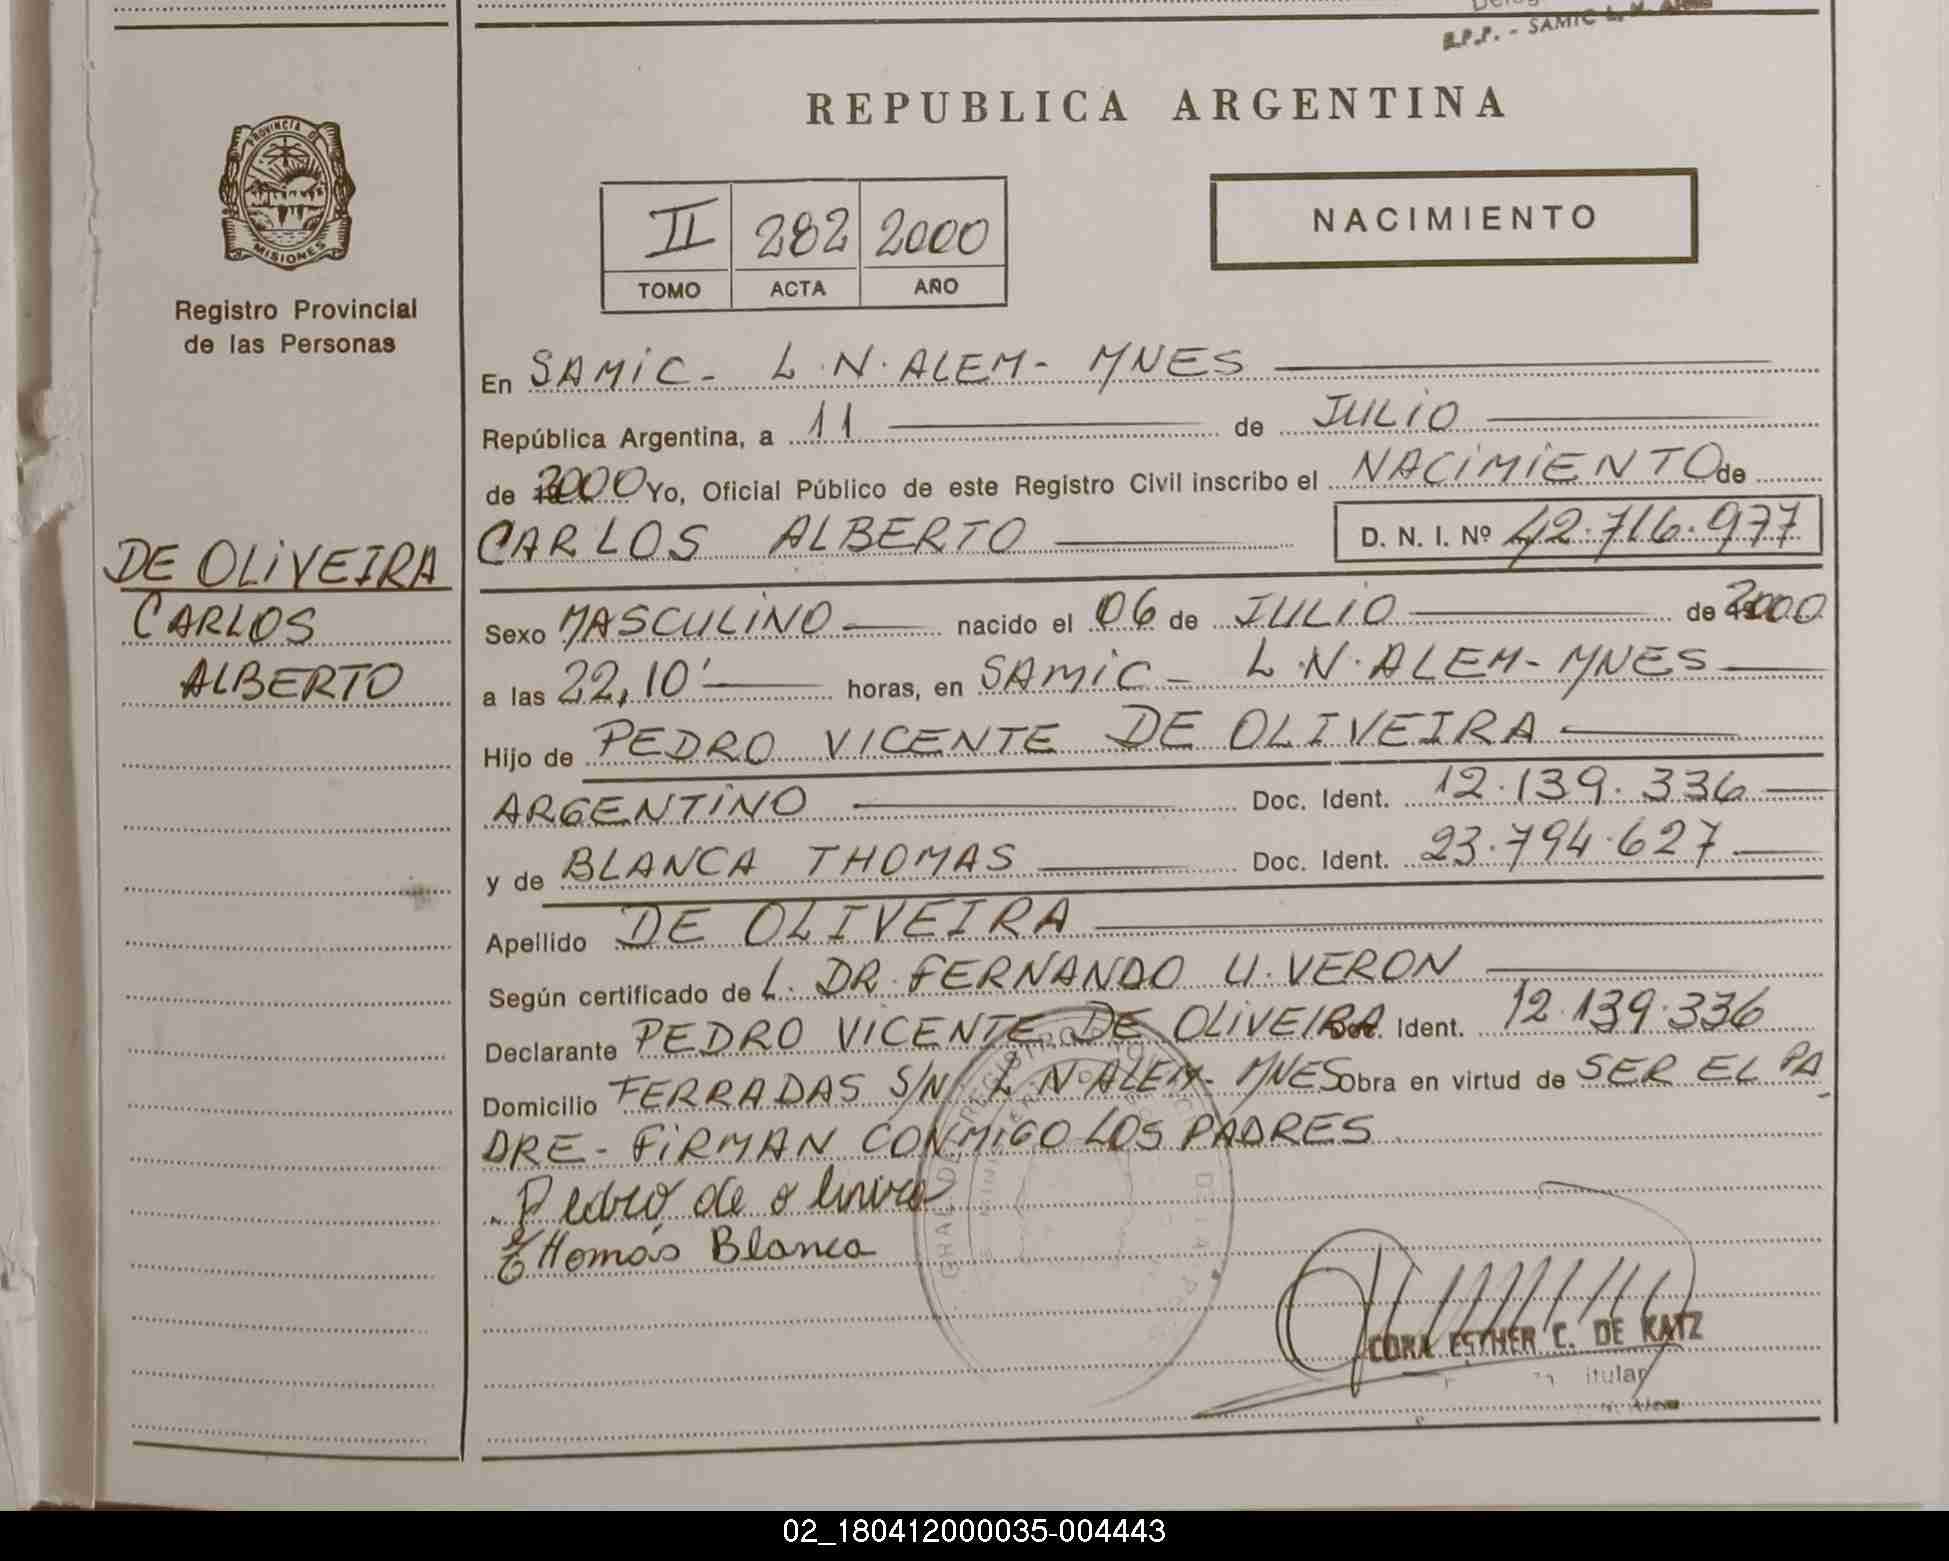 S.P.P. - SAMIC L. N. ALEM
REPUBLICA ARGENTINA
PROVINCIA D
MISIONES
Registro Provincial
de las Personas
II 282 2000
TOMO ACTA AÑO
NACIMIENTO
En SAMIC - L. N. ALEM - MNES
República Argentina, a 11 de JULIO
de 2000 Yo, Oficial Público de este Registro Civil inscribo el NACIMIENTO de
CARLOS ALBERTO D. N. I. Nº 42.716.977
DE OLIVEIRA
CARLOS
ALBERTO
Sexo MASCULINO nacido el 06 de JULIO de 2000
a las 22,10' horas, en SAMIC - L. N. ALEM - MNES
Hijo de PEDRO VICENTE DE OLIVEIRA
ARGENTINO Doc. Ident. 12.139.336
y de BLANCA THOMAS Doc. Ident. 23.794.627
Apellido DE OLIVEIRA
Según certificado de L. DR. FERNANDO U. VERON
Declarante PEDRO VICENTE DE OLIVEIRA Doc. Ident. 12.139.336
Domicilio FERRADAS S/N L N ALEM - MNES Obra en virtud de SER EL PA
DRE - FIRMAN CONMIGO LOS PADRES
Pedro de
Thomas Blanca
CORA ESTHER C. DE KATZ
itular
02_180412000035-004443